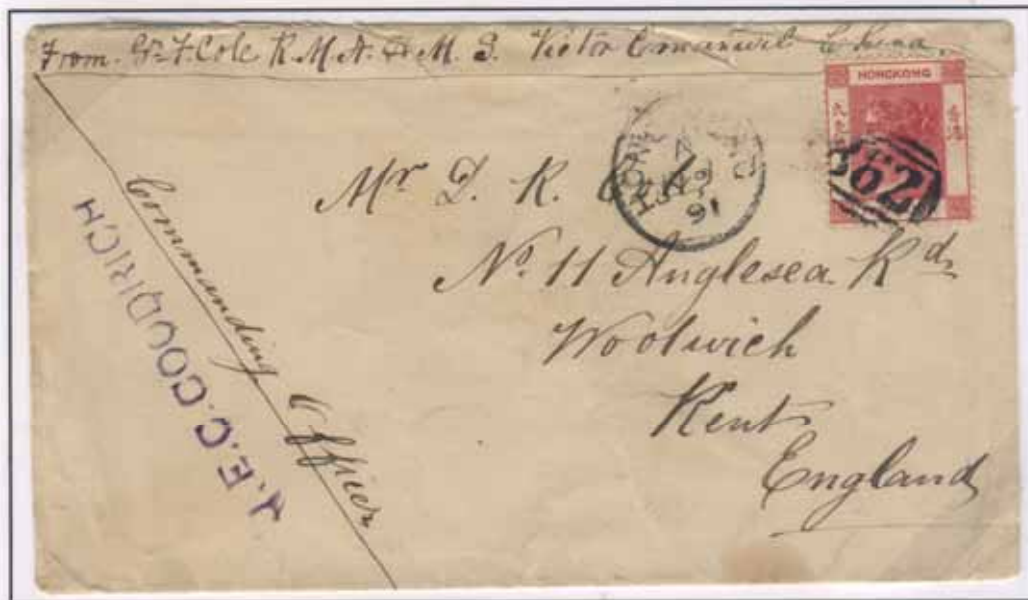 From Gr. F. Cole R.M.A. H.M.S. Victor Emanuel China.
HONGKONG
香港
Mr D. R.
JA 9
91
B62
No 11 Anglesea Rd
Woolwich
Kent
England
Commanding Officer
J.E.C. GOODRICH